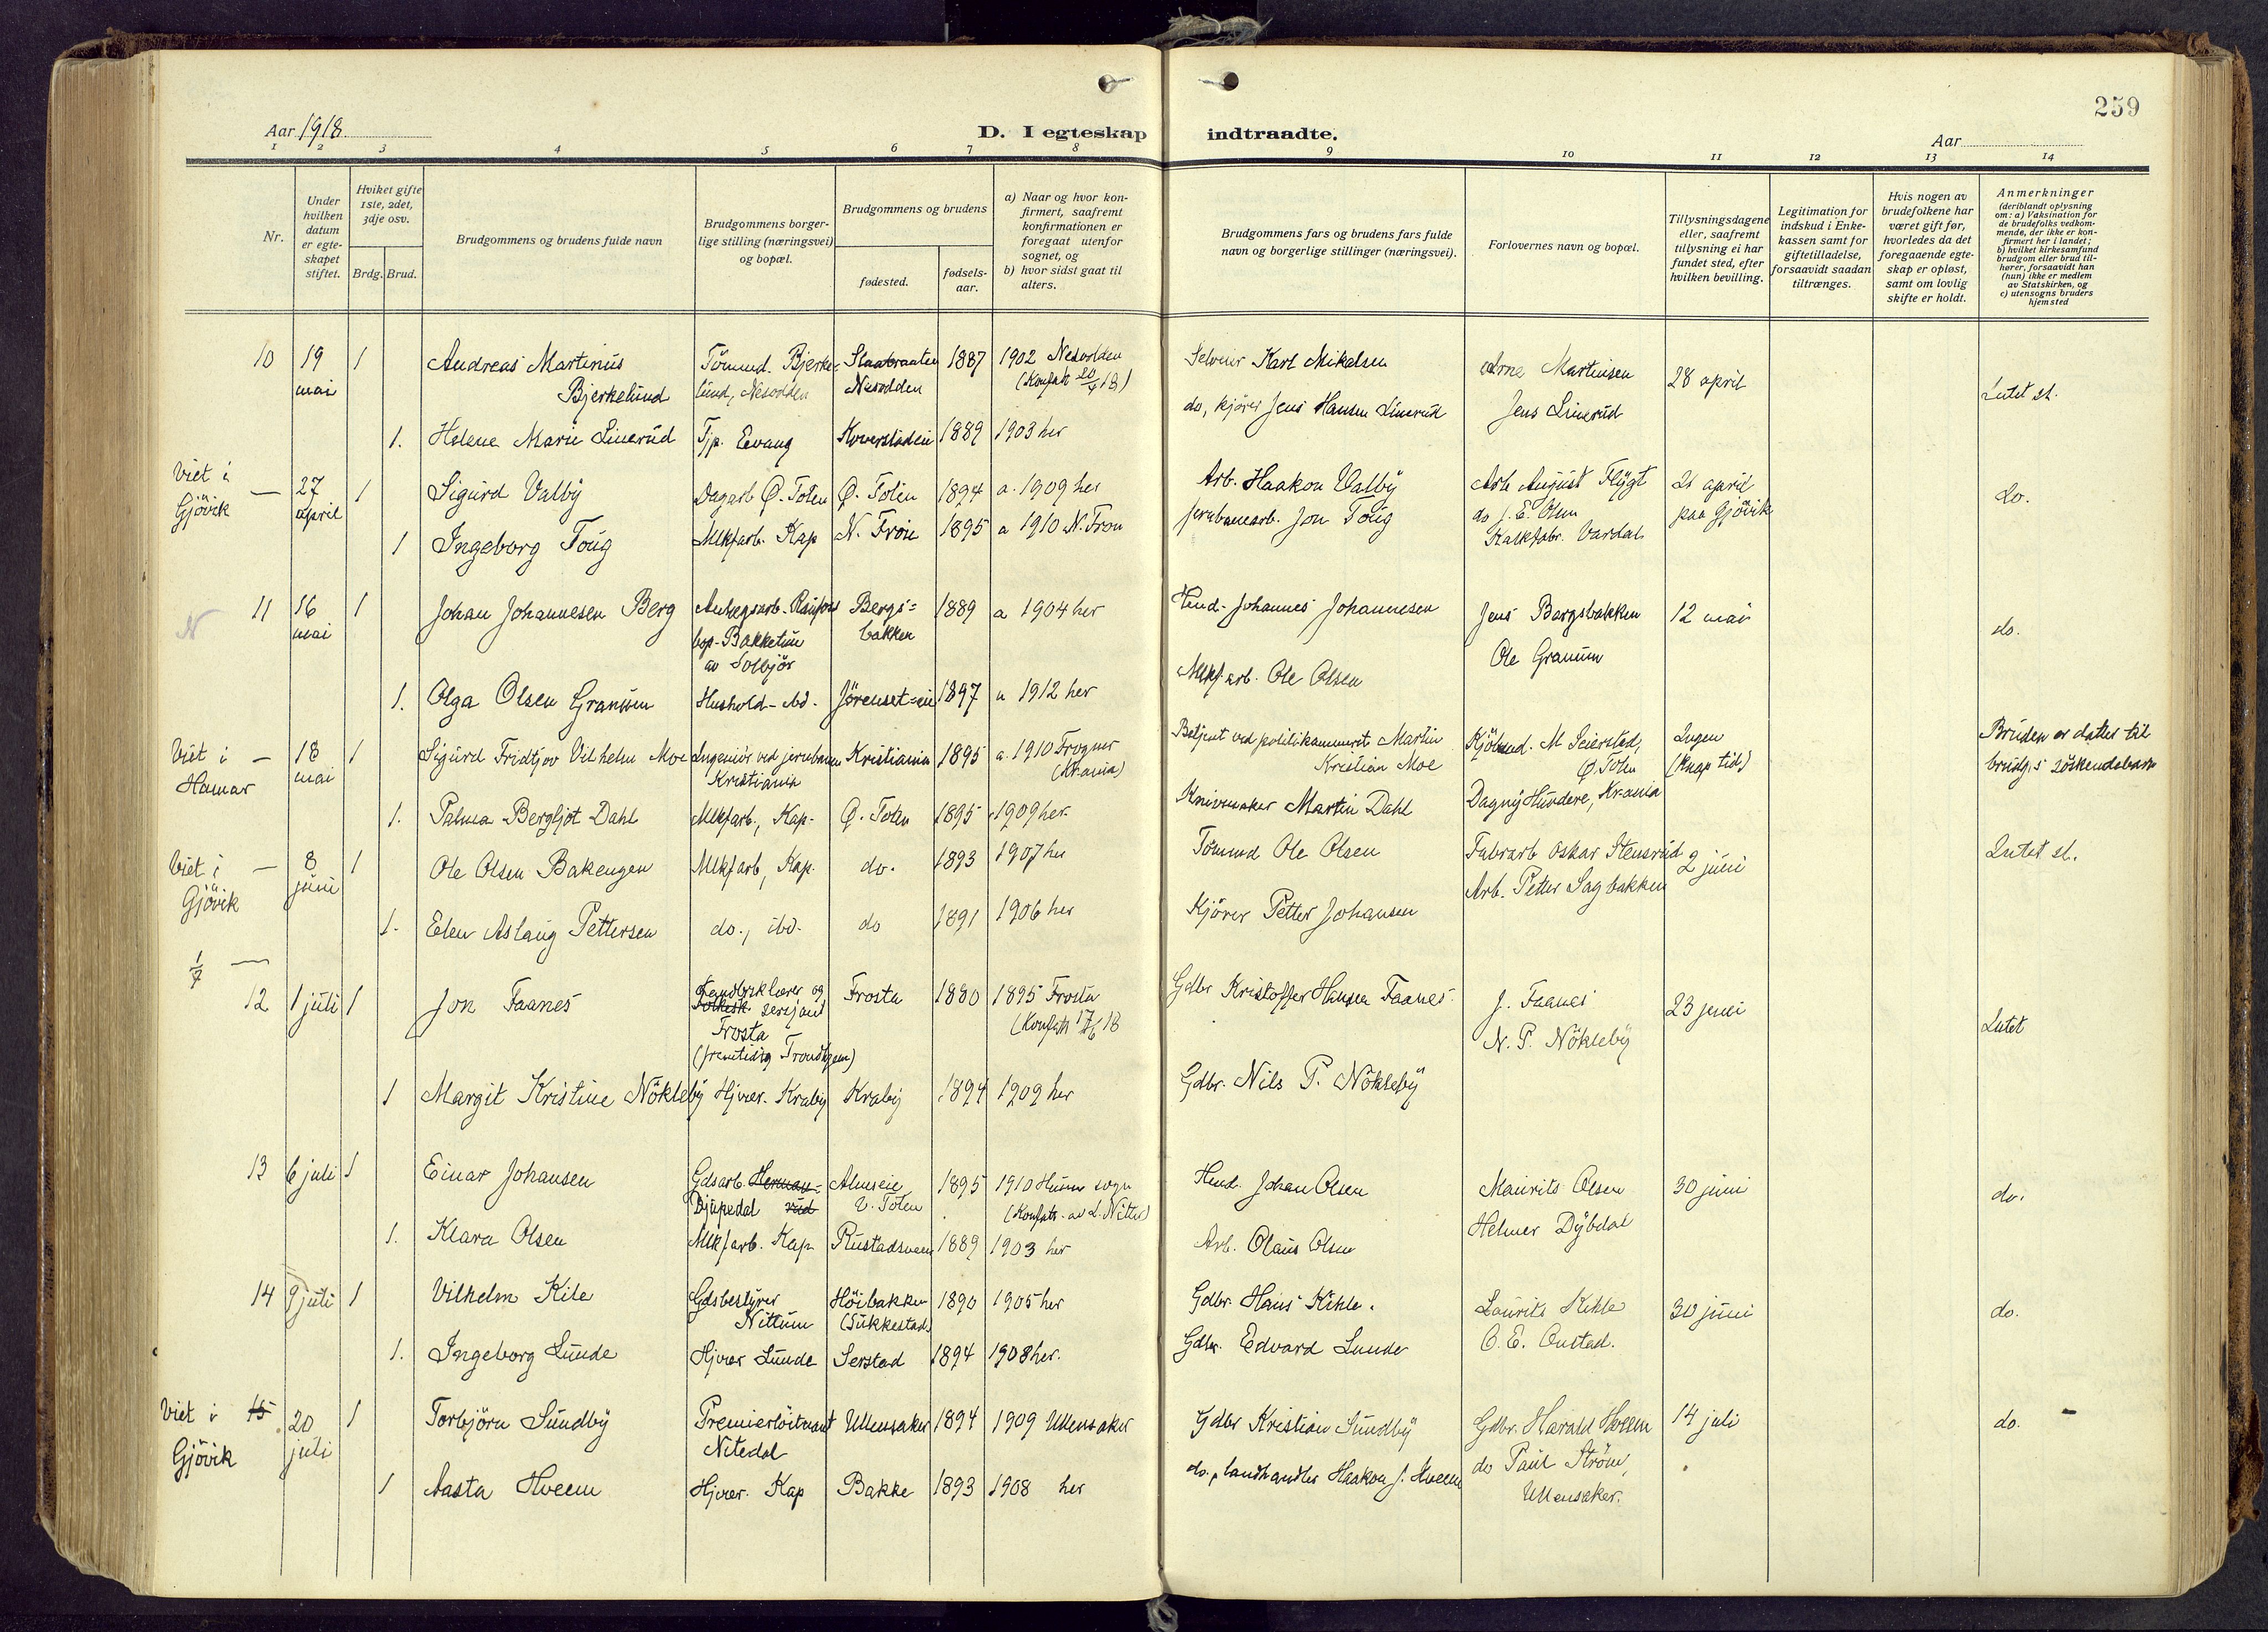 259
Aar 1918
D. I egteskap indtraadte.
Aar
1 2 3 4 5 6 7 8 9 10 11 12 13 14
Nr.
Under hvilken datum er egte-skapet stiftet.
Hviket gifte 1ste, 2det, 3dje osv.
Brdg. Brud.
Brudgommens og brudens fulde navn
Brudgommens borger-lige stilling (næringsvei) og bopæl.
Brudgommens og brudens
fødested.
fødsels-aar.
a) Naar og hvor kon-firmert, saafremt konfirmationen er foregaat utenfor sognet, og
b) hvor sidst gaat til alters.
Brudgommens fars og brudens fars fulde navn og borgerlige stillinger (næringsvei).
Forlovernes navn og bopæl.
Tillysningsdagene eller, saafremt tillysning ei har fundet sted, efter hvilken bevilling.
Legitimation for indskud i Enke-kassen samt for giftetilladelse, forsaavidt saadan tiltrænges.
Hvis nogen av brudefolkene har været gift før, hvorledes da det foregaaende egte-skap er opløst, samt om lovlig skifte er holdt.
Anmerkninger
(deriblandt oplysning om: a) Vaksination for de brudefolks vedkom-mende, der ikke er kon-firmert her i landet; b) hvilket kirkesamfund brudgom eller brud til-hører, forsaavidt han (hun) ikke er medlem av Statskirken, og c) utensogns bruders hjemsted
10 19 mai 1 Andreas Martinus Bjerkelund Tömmd. Bjerke= lund, Nesodden Nesodden 1887 1902 Nesodden (Konfatt 20/4 18) Selveier Karl Mikalsen Arne Martinsen 28 april Intet sl.
1. Helene Marie Linerud Tjp. Eevang Koverstadeie 1889 1903 her do, kjörer Jens Hansen Linerud Jens Linerud
Viet i Gjövik — 27 april 1 Sigurd Valby Dagarb Ø. Toten Ø. Toten 1894 a. 1909 her Arb. Haakon Valby Arb August Flygt 21 april paa Gjövik do.
1 Ingeborg Toug Mekfarb. Kap N. Fron 1895 a 1910 N. Fron jernbanearb. Jon Toug do J. E. Olsen Kalkfabr. Vardal
N 11 16 mai 1 Johan Johannesen Berg Anlegsarb. Raufoss bop-Bakketun av Solbjör Bergs= bakken 1889 a 1904 her Hmd. Johannes Johannesen Jens Bergsbakken 12 mai do.
1. Olga Olsen Granum Hushold- ibd. Jörenset=eie 1897 a 1912 her Mekf arb. Ole Olsen Ole Granum
Viet i Hamar — 18 mai 1 Sigurd Fridtjov Vilhelm Moe Ingeniör ved jernbanen Kristiania Kristiania 1895 a. 1910 Frogner (Kr.ania) Betjent ved politikammeret Martin Kristian Moe Kjöbmd. M Seierstad, Ø. Toten Ingen (knap tid) Bruden er datter til brudg.s söskendebarn
1. Palma Bergljot Dahl Mekfarb., Kap. Ø. Toten 1895 1909 her Knivmaker Martin Dahl Dagny Hundere, Kr.ania
Viet i Gjövik — 8 juni 1 Ole Olsen Bakengen Mekfarb, Kap. do. 1893 1907 her Tömmd Ole Olsen Fabrarb Oskar Stensrud 2 juni Intet sl.
1. Elen Aslaug Pettersen do., ibd. do 1891 1906 her Kjörer Petter Johansen Arb. Petter Sagbakken
1/7 —
12 1 juli 1 Jon Faanes Landbrklærer og sersjant Frosta (fremtidig Trondhjem) Frosta 1880 1895 Frosta (Konfatt 17/6 18 Gdbr Kristoffer Hansen Faanes J. Faanes 23 juni Intet
1 Margit Kristine Nökleby Hjver. Kraby Kraby 1894 1909 her Gdbr. Nils P. Nökleby N. P. Nökleby
13 6 juli 1 Einar Johansen Gdsarb. Herman= rud Djupedal Almseie V. Toten 1895 1910 Hunn sogn Hmd. Johan Olsen Maurits Olsen 30 juni do.
1. Klara Olsen Mekfarb. Kap Rustadsveen 1889 1903 her Arb. Olaus Olsen Helmer Dybdal
14 9 juli 1 Vilhelm Kile Gdsbestyrer Nittum Höibakken (Sukkestad) 1890 1905 her Gdbr. Hans Kihle. Laurits Kihle 30 juni do.
1. Ingeborg Lunde Hjver Lunde Serstad 1894 1908 her. Gdbr. Edvard Lunde O. E. Onstad.
Viet i Gjövik 15 20 juli 1 Torbjörn Sundby Premierlöitnant Nitedal Ullensaker 1894 1909 Ullensaker Gdbr Kristian Sundby Gdbr. Harald Hveem 14 juli do. –
1 Aasta Hveem Hjver. Kap Bakke 1893 1908 her do, landhandler Haakon J. Hveem do Paul Ström, Ullensaker.